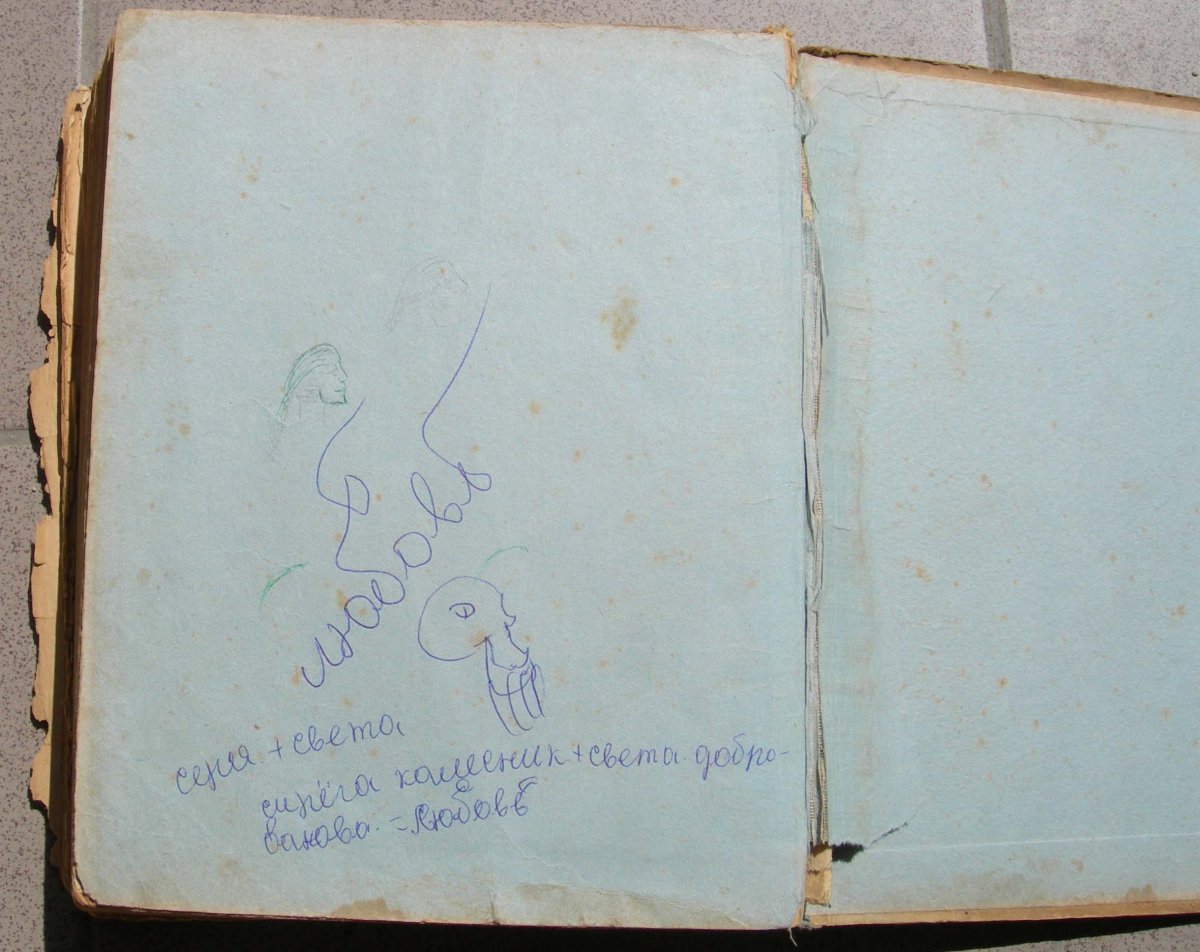 Любовь
серия + света
сирёга колесник + света добро-
ванова. = Любовь